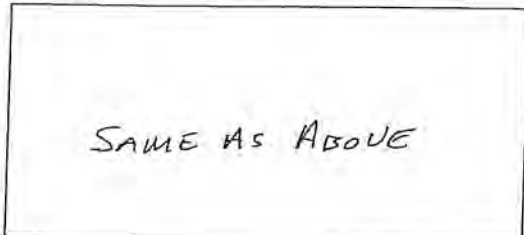 SAME AS ABOVE